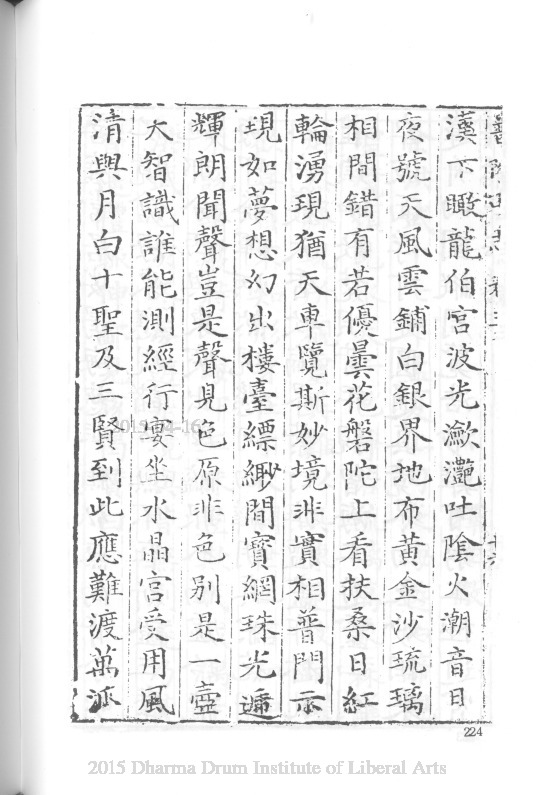 漢下瞰龍伯宮波光瀲灔吐陰火潮音日
夜號天風雲鋪白銀界地布黃金沙琉璃
相間錯有若優曇花磐陀上看扶桑日紅
輪湧現猶天車覽斯妙境非實相普門示
現如夢想幻出樓臺縹緲間寶網珠光遍
輝朗聞聲豈是聲見色原非色別是一壺
天智識誰能測經行宴坐水晶宮受用風
清與月白十聖及三賢到此應難渡萬派
224
2015 Dharma Drum Institute of Liberal Arts